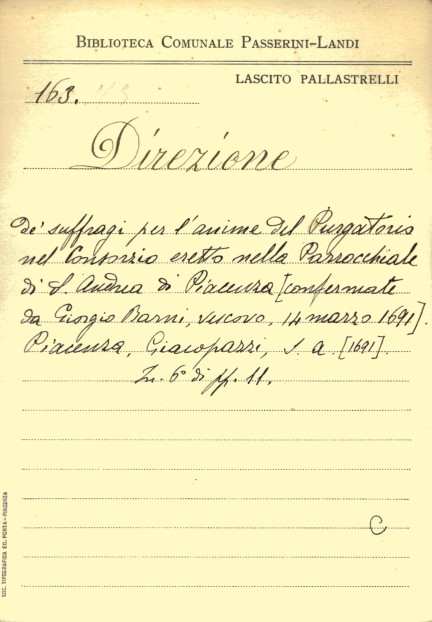 BIBLIOTECA COMUNALE PASSERINI-LANDI
LASCITO PALLASTRELLI
163.
Direzione
de' suffragi per l'anime del Purgatorio
nel Consorzio eretto nella Parrocchiale
di S. Andrea di Piacenza [confermate
da Giorgio Barni, vescovo, 14 marzo 1691].
Piacenza, Giacopazzi, s. a. [1691].
In. 6° di ff. 11.
C
SOC. TIPOGRAFICA ED. PORTA - PIACENZA